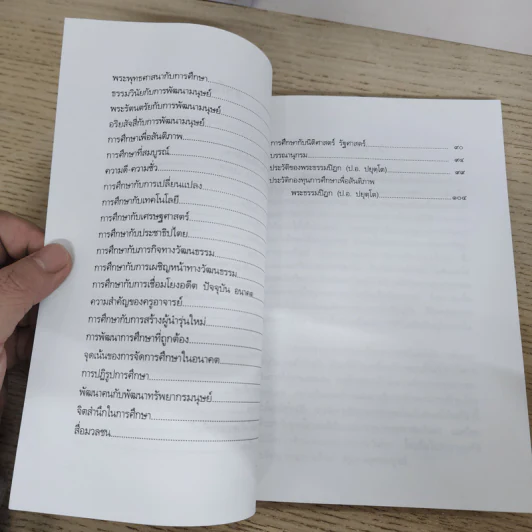 พระพุทธศาสนากับการศึกษา
ธรรมวินัยกับการพัฒนามนุษย์
พระรัตนตรัยกับการพัฒนามนุษย์
อริยสัจสี่กับการพัฒนามนุษย์
การศึกษาเพื่อสันติภาพ
การศึกษาที่สมบูรณ์
ความดี-ความชั่ว
การศึกษากับการเปลี่ยนแปลง
การศึกษากับเทคโนโลยี
การศึกษากับเศรษฐศาสตร์
การศึกษากับประชาธิปไตย
การศึกษากับภารกิจทางวัฒนธรรม
การศึกษากับการเผชิญหน้าทางวัฒนธรรม
การศึกษากับการเชื่อมโยงอดีต ปัจจุบัน อนาคต
ความสำคัญของครูอาจารย์
การศึกษากับการสร้างผู้นำรุ่นใหม่
การพัฒนาการศึกษาที่ถูกต้อง
จุดเน้นของการจัดการศึกษาในอนาคต
การปฏิรูปการศึกษา
พัฒนาคนกับพัฒนาทรัพยากรมนุษย์
จิตสำนึกในการศึกษา
สื่อมวลชน
การศึกษากับนิติศาสตร์ รัฐศาสตร์ ๙๐
บรรณานุกรม ๙๔
ประวัติของพระธรรมปิฎก (ป.อ. ปยุตฺโต) ๙๙
ประวัติกองทุนการศึกษาเพื่อสันติภาพ
พระธรรมปิฎก (ป.อ. ปยุตฺโต) ๑๐๔